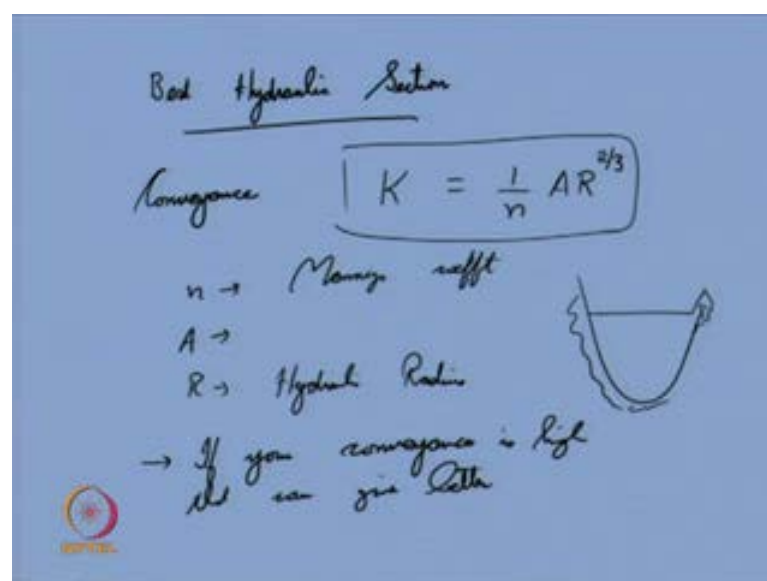 Best Hydraulic Section
Conveyance K = 1/n AR^2/3
n → Mannings coefft
A →
R → Hydraulic Radius
→ If your conveyance is high
can give better